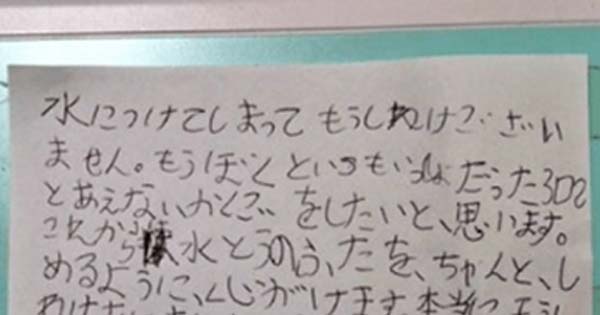 水につけてしまって もうしわけござい
ません。もうぼくといつもいっしょだった3DS
とあえないかくごをしたいと、思います。
これから水とうのふ、たを、ちゃんと、し
めるように、がけます。本当にもうし